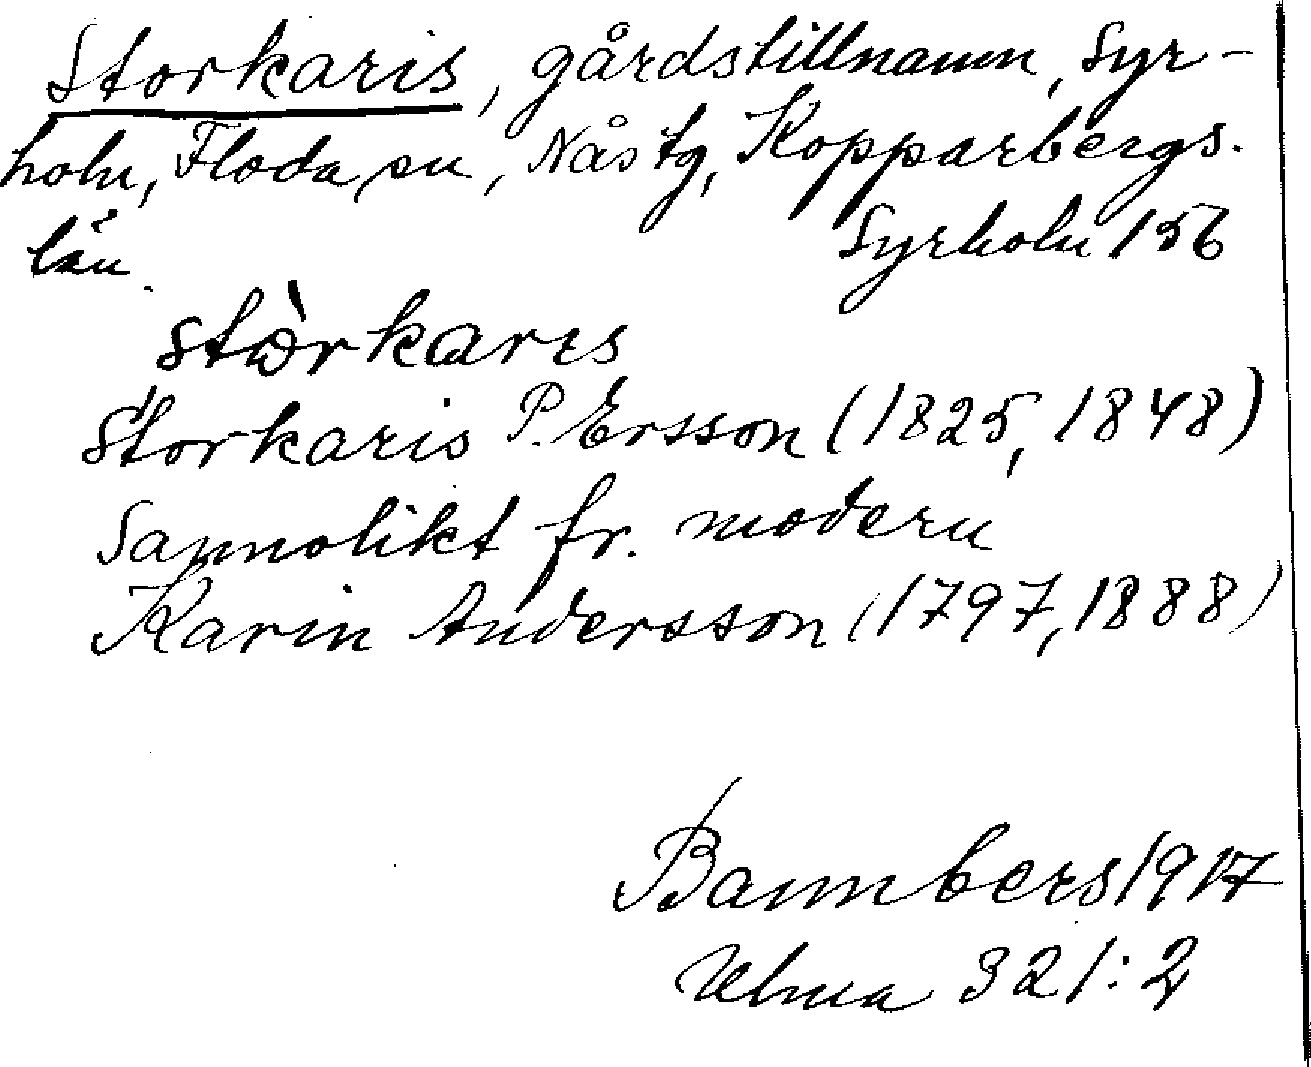 Storkaris, gårdstillnamn, Syr-
holn, Floda sn, Nås tg, Kopparbergs.
län.
Syrholn 156
stòrkares
Storkaris P. Ersson (1825, 1848)
Sannolikt fr. modern
Karin Andersson (1797, 1888)
Bannbers 1917
Ulma 321:2